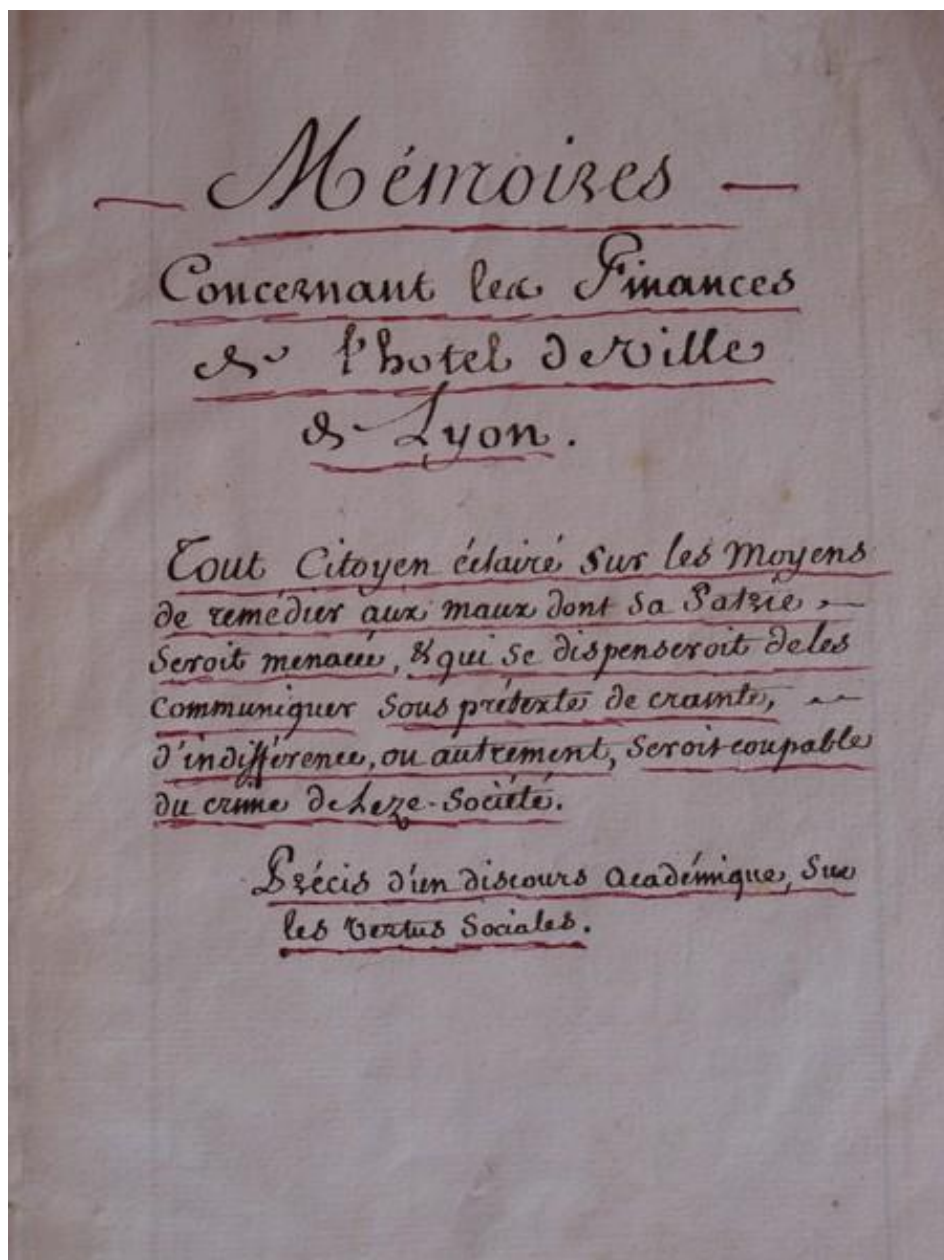 — Mémoires —
Concernant les Finances
de l'hotel de Ville
de Lyon.
Tout Citoyen éclairé sur les Moyens
de remédier aux maux dont sa Patrie,
seroit menacée, & qui se dispenseroit de les
communiquer sous prétexte de crainte,
d'indifférence, ou autrement, seroit coupable
du crime de Leze-Société.
Précis d'un discours académique, sur
les vertus Sociales.